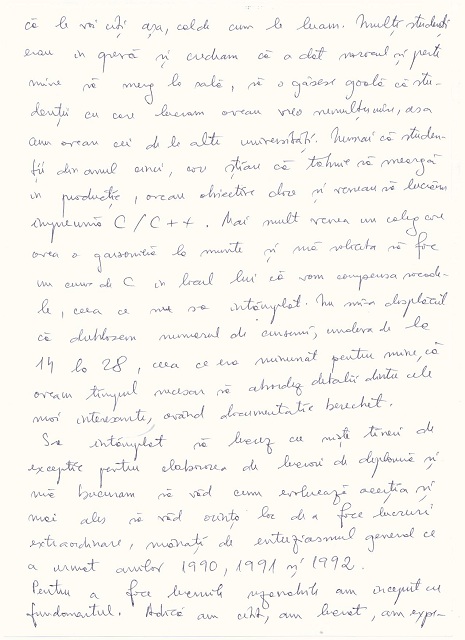 că le voi citi așa, calde cum le luam. Mulți studenți
erau in grevă și credeam că a dat norocul și peste
mine să merg la sală, să o găsesc goală că stu-
denții cu care lucram aveau vreo nemulțumire, așa
cum aveau cei de la alte universități. Numai că studen-
ții din anul cinci, care știau că tabme să meargă
in producție, aveau obiective clare și veneau să lucrăm
impreună C / C++. Mai mult venea un coleg care
avea o garsonieră la munte și mă solicita să fac
un curs de C in locul lui că vom compensa vreoda-
tă, ceea ce nu s-a intâmplat. Nu mi-a displăcut
că dublasem numarul de cursuri, undeva de la
14 la 28, ceea ce era minunat pentru mine, că
aveam timpul necesar să abordez detalii dintre cele
mai interesante, având documentatie berechet.
S-a intâmplat să lucrez cu niște tineri de
excepție pentru elaborarea de lucrări de diplomă și
mă bucuram să văd cum evoluează aceștia și
mai ales să văd dorința lor de a face lucruri
extraordinare, mânați de entuziasmul general ce
a urmat anilor 1990, 1991 și 1992.
Pentru a face lucrurile rezonabile am inceput cu
fundamentul. Adică am citit, am lucrat, am expe-